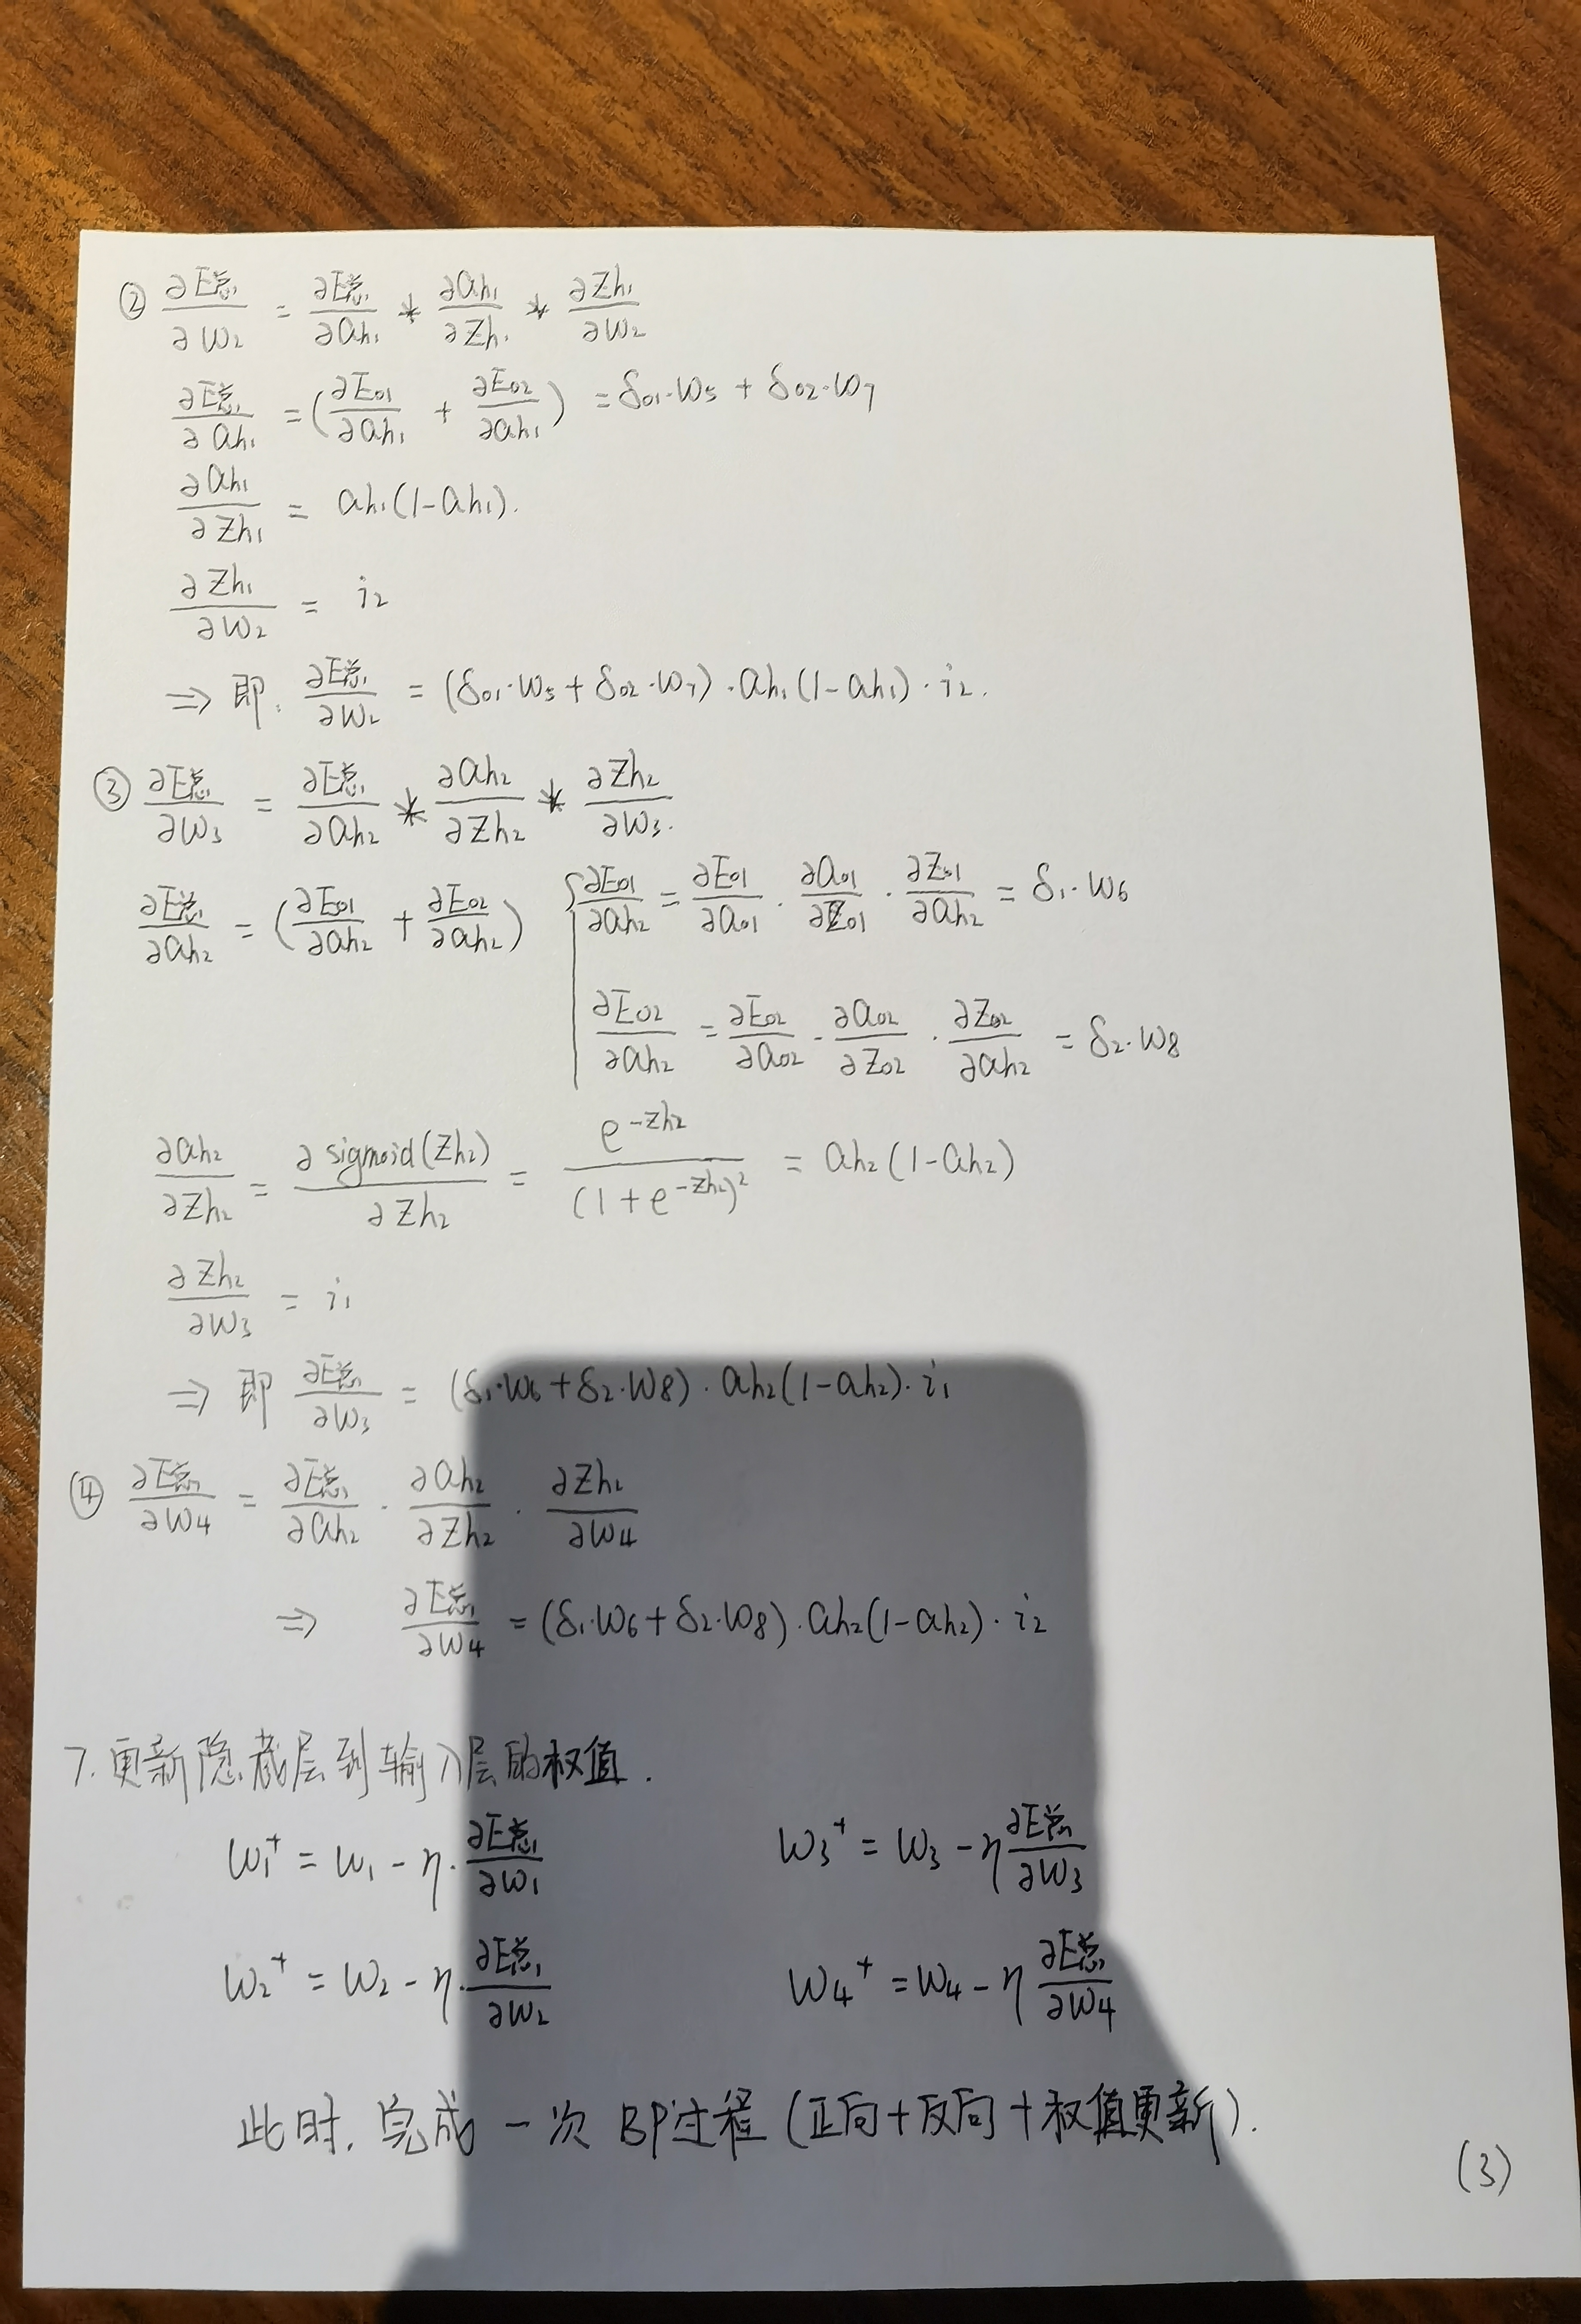 ② ∂E总/∂w₂ = ∂E总/∂ah₁ * ∂ah₁/∂zh₁ * ∂zh₁/∂w₂
∂E总/∂ah₁ = (∂E₀₁/∂ah₁ + ∂E₀₂/∂ah₁) = δ₀₁·w₅ + δ₀₂·w₇
∂ah₁/∂zh₁ = ah₁(1-ah₁).
∂zh₁/∂w₂ = i₂
⇒ 即: ∂E总/∂w₂ = (δ₀₁·w₅ + δ₀₂·w₇)·ah₁(1-ah₁)·i₂.
③ ∂E总/∂w₃ = ∂E总/∂ah₂ * ∂ah₂/∂zh₂ * ∂zh₂/∂w₃.
∂E总/∂ah₂ = (∂E₀₁/∂ah₂ + ∂E₀₂/∂ah₂) { ∂E₀₁/∂ah₂ = ∂E₀₁/∂a₀₁ · ∂a₀₁/∂z₀₁ · ∂z₀₁/∂ah₂ = δ₁·w₆
∂E₀₂/∂ah₂ = ∂E₀₂/∂a₀₂ · ∂a₀₂/∂z₀₂ · ∂z₀₂/∂ah₂ = δ₂·w₈
∂ah₂/∂zh₂ = ∂sigmoid(zh₂)/∂zh₂ = e^(-zh₂)/(1+e^(-zh₂))² = ah₂(1-ah₂)
∂zh₂/∂w₃ = i₁
⇒ 即 ∂E总/∂w₃ = (δ₁·w₆ + δ₂·w₈)·ah₂(1-ah₂)·i₁
④ ∂E总/∂w₄ = ∂E总/∂ah₂ · ∂ah₂/∂zh₂ · ∂zh₂/∂w₄
⇒ ∂E总/∂w₄ = (δ₁·w₆ + δ₂·w₈)·ah₂(1-ah₂)·i₂
7. 更新隐藏层到输入层的权值.
w₁⁺ = w₁ - η·∂E总/∂w₁ w₃⁺ = w₃ - η∂E总/∂w₃
w₂⁺ = w₂ - η·∂E总/∂w₂ w₄⁺ = w₄ - η∂E总/∂w₄
此时, 完成一次 BP过程 (正向+反向+权值更新).
(3)